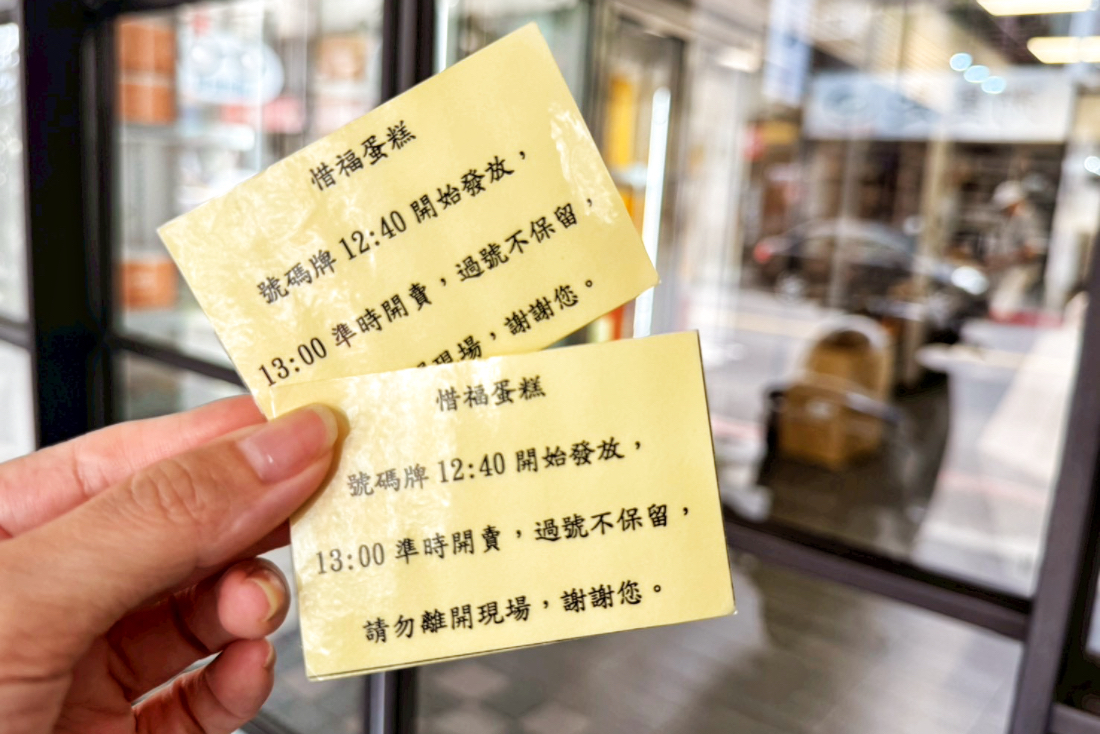 惜福蛋糕
號碼牌 12:40 開始發放，
13:00 準時開賣，過號不保留，
現場，謝謝您。
惜福蛋糕
號碼牌 12:40 開始發放，
13:00 準時開賣，過號不保留，
請勿離開現場，謝謝您。